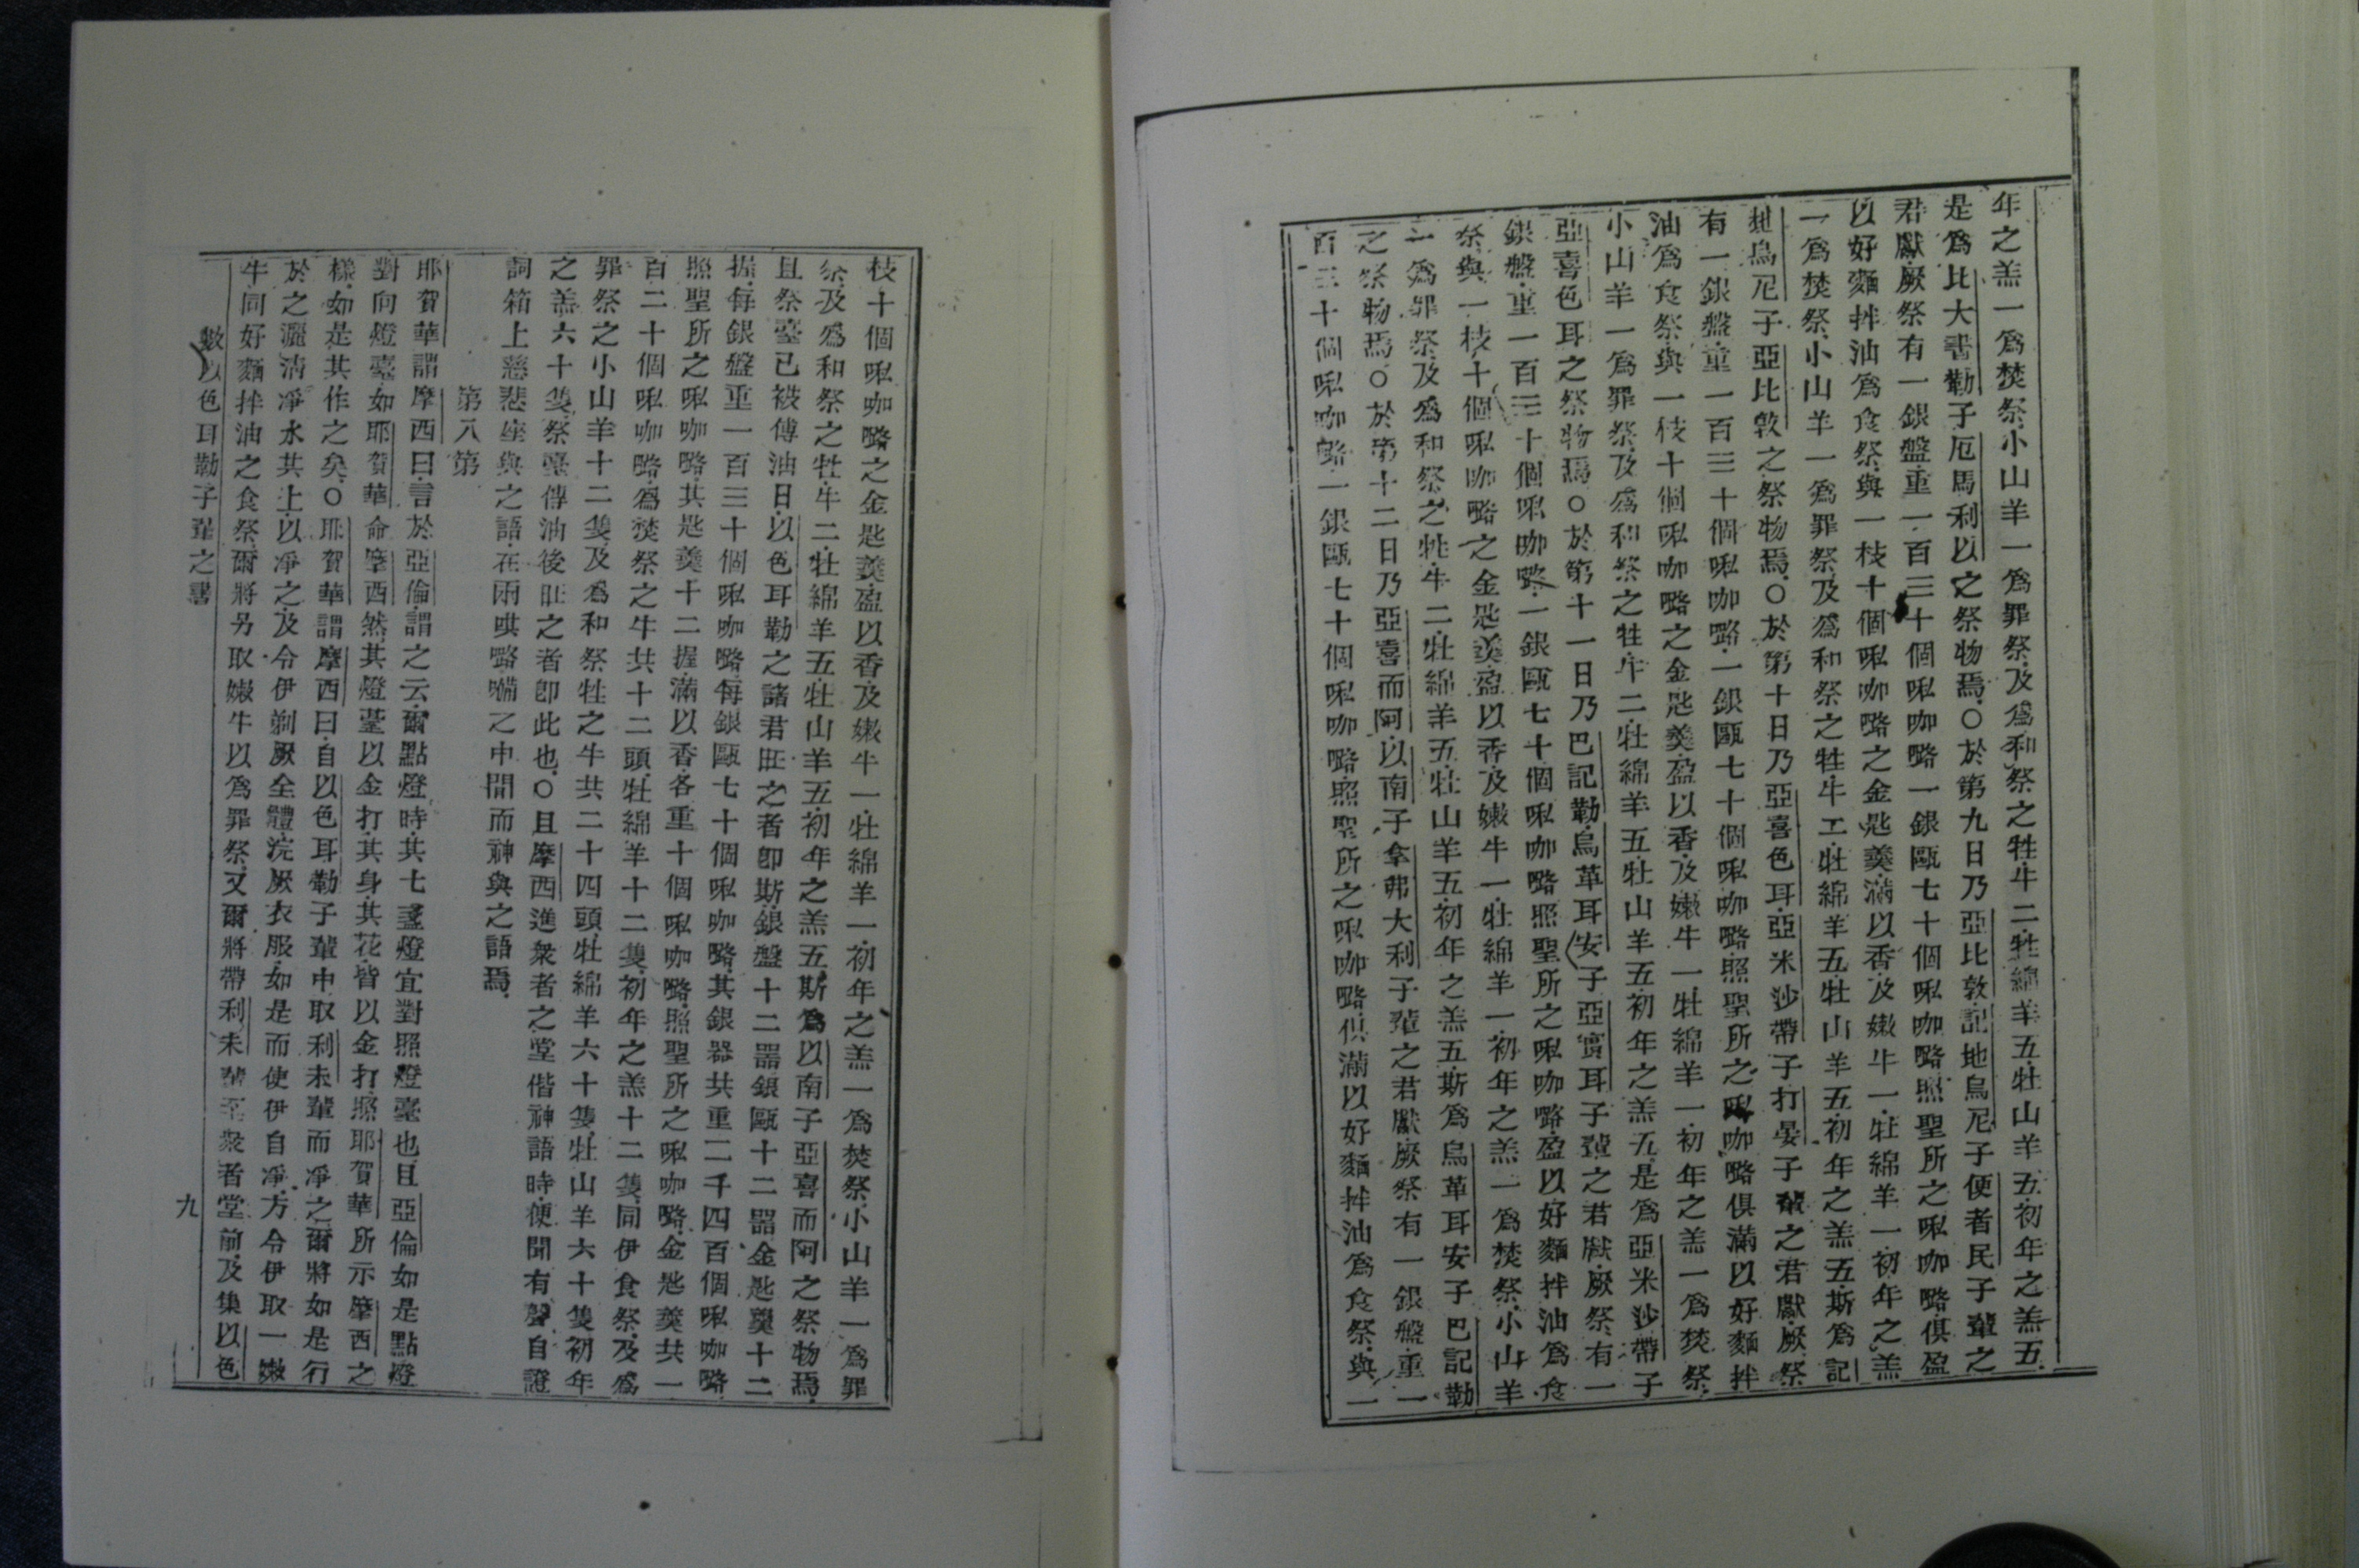 年之羔一爲焚祭小山羊一爲罪祭及爲和祭之牲牛二牡綿羊五牡山羊五初年之羔五
是爲比大書勸子厄馬利以之祭物焉○於第九日乃亞比敦記地烏尼子便者民子輩之
君獻厥祭有一銀盤重一百三十個㖠咖㗉一銀甌七十個㖠咖㗉照聖所之㖠咖㗉俱盈
以好麵拌油爲食祭與一枝十個㖠咖㗉之金匙羹滿以香及嫩牛一牡綿羊一初年之羔
一爲焚祭小山羊一爲罪祭及爲和祭之牲牛二牡綿羊五牡山羊五初年之羔五斯爲記
地烏尼子亞比敦之祭物焉○於第十日乃亞喜色耳亞米沙帶子打晏子輩之君獻厥祭
有一銀盤重一百三十個㖠咖㗉一銀甌七十個㖠咖㗉照聖所之㖠咖㗉俱滿以好麵拌
油爲食祭與一枝十個㖠咖㗉之金匙羹盈以香及嫩牛一牡綿羊一初年之羔一爲焚祭
小山羊一爲罪祭及爲和祭之牲牛二牡綿羊五牡山羊五初年之羔五是爲亞米沙帶子
亞喜色耳之祭物焉○於第十一日乃巴記勒烏革耳安子亞實耳子輩之君獻厥祭有一
銀盤重一百三十個㖠咖㗉一銀甌七十個㖠咖㗉照聖所之㖠咖㗉盈以好麵拌油爲食
祭與一枝十個㖠咖㗉之金匙羹盈以香及嫩牛一牡綿羊一初年之羔一爲焚祭小山羊
一爲罪祭及爲和祭之牲牛二牡綿羊五牡山羊五初年之羔五斯爲烏革耳安子巴記勒
之祭物焉○於第十二日乃亞喜而阿以南子拿弗大利子輩之君獻厥祭有一銀盤重一
百三十個㖠咖㗉一銀甌七十個㖠咖㗉照聖所之㖠咖㗉俱滿以好麵拌油爲食祭與一
枝十個㖠咖㗉之金匙羹盈以香及嫩牛一牡綿羊一初年之羔一爲焚祭小山羊一爲罪
祭及爲和祭之牲牛二牡綿羊五牡山羊五初年之羔五斯爲以南子亞喜而阿之祭物焉
且祭臺已被傅油日以色耳勒之諸君旺之者卽斯銀盤十二器銀甌十二器金匙羹十二
握每銀盤重一百三十個㖠咖㗉每銀甌七十個㖠咖㗉其銀器共重二千四百個㖠咖㗉
照聖所之㖠咖㗉其匙羹十二握滿以香各重十個㖠咖㗉照聖所之㖠咖㗉金匙羹共一
百二十個㖠咖㗉爲焚祭之牛共十二頭牡綿羊十二隻初年之羔十二隻同伊食祭及爲
罪祭之小山羊十二隻及爲和祭牲之牛共二十四頭牡綿羊六十隻牡山羊六十隻初年
之羔六十隻祭臺傅油後旺之者卽此也○且摩西進衆者之堂偕神語時便聞有聲自證
詞箱上慈悲座與之語在兩㖓㗉㘔之中間而神與之語焉
第八第
耶賀華謂摩西曰言於亞倫謂之云爾點燈時其七盞燈宜對照燈臺也且亞倫如是點燈
對向燈臺如耶賀華命摩西然其燈臺以金打其身其花皆以金打照耶賀華所示摩西之
樣如是其作之矣○耶賀華謂摩西曰自以色耳勒子輩中取利未輩而淨之爾將如是行
於之灑淸淨水其上以淨之及令伊剃厥全體浣厥衣服如是而使伊自淨方令伊取一嫩
牛同好麵拌油之食祭爾將另取嫩牛以爲罪祭又爾將帶利未輩至衆者堂前及集以色
數以色耳勒子輩之書
九